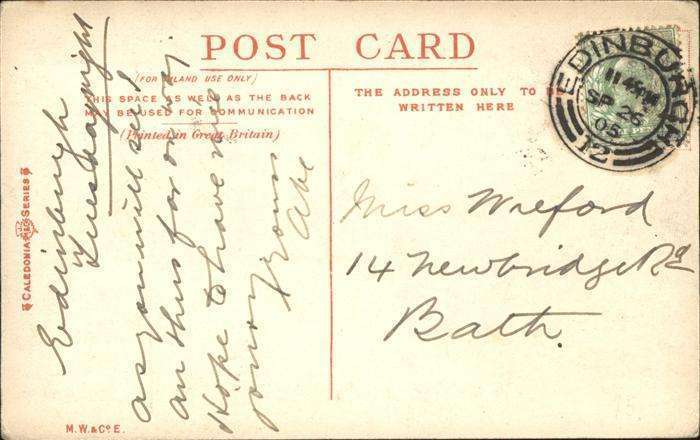 POST CARD
(FOR INLAND USE ONLY)
THIS SPACE AS WELL AS THE BACK
MAY BE USED FOR COMMUNICATION
(Printed in Great Britain)
THE ADDRESS ONLY TO BE
WRITTEN HERE
EDINBURGH
SP 26
05
12
Edinburgh
Tuesday night
as you will see I
am thus far on way
Hope to have nice
journey
Yours
Abe
Miss Wreford
14 Newbridge Rd
Bath.
CALEDONIA SERIES
M.W.&Co. E.